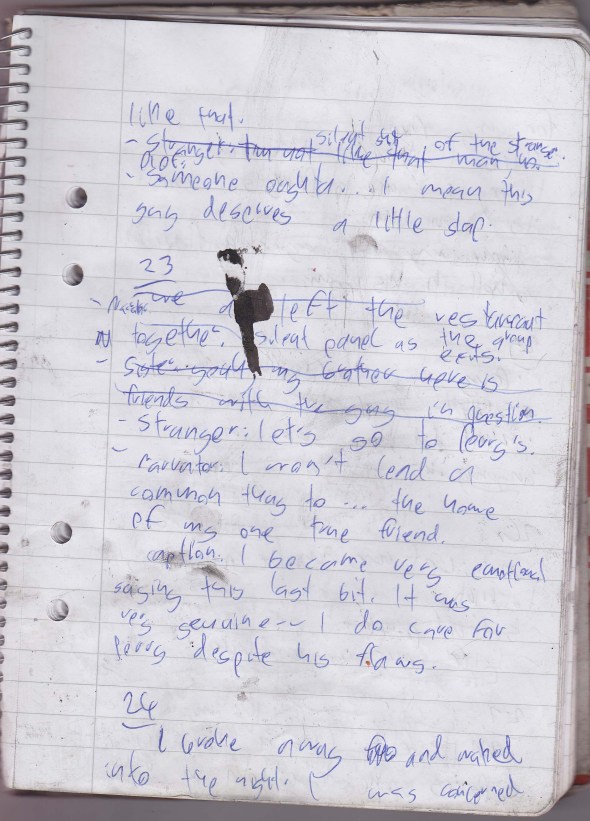 like that.
silent of the strange.
- Stranger: I'm not like that man, no.
- Someone oughta... I mean this
guy deserves a little slap.
23
left the restaurant
together. silent panel as the group
exits.
my brother here is
friends with the guy in question.
- Stranger: let's go to Perry's.
- Narrator: I won't lend a
common thug to ... the home
of my one true friend.
caption. I became very emotional
saying this last bit. It was
very genuine -- I do care for
Perry despite his flaws.
24
I broke away and walked
into the night. I was concerned